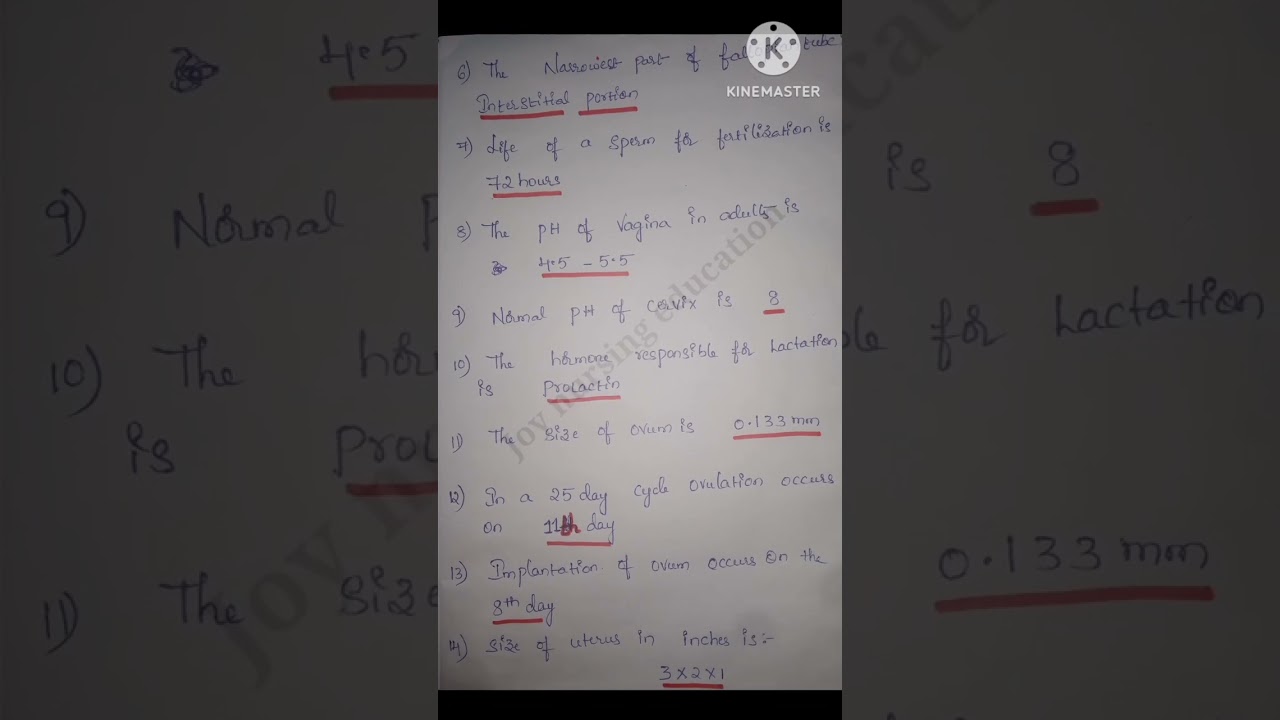 KINEMASTER
6) The Narrowest part of tube
Interstitial portion
7) Life of a sperm for fertilization is
72 hours
8) The pH of vagina in adults is
4.5 - 5.5
9) Normal pH of cervix is 8
10) The hormone responsible for Lactation
is Prolactin
11) The size of ovum is 0.133 mm
12) In a 25 day cycle ovulation occurs
on 11th day
13) Implantation of ovum occurs on the
8th day
14) Size of uterus in inches is:-
3 x 2 x 1
joy nursing education
4.5
9) Normal
is 8
10) The
for Lactation
is
11) The
0.133 mm